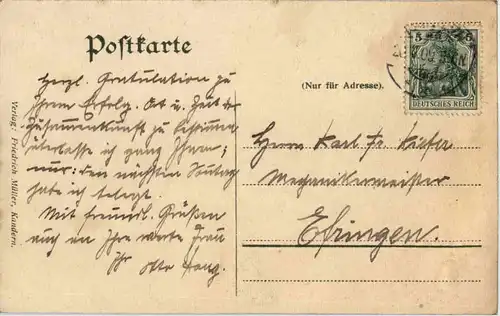 Postkarte
Herzl. Gratulation zu
Ihrem Erfolg. Ort u. Zeit der
Zusammenkunft zu bestimmen
überlasse ich ganz Ihnen;
nur: den nächsten Sonntag
habe ich belegt.
Mit freundl. Grüßen
auch an Ihre werte Frau
Ihr Otto
Verlag: Friedrich Müller, Kandern.
(Nur für Adresse).
DEUTSCHES REICH
Herrn Karl Fr. Kiefer
Mechanikermeister
Efringen.